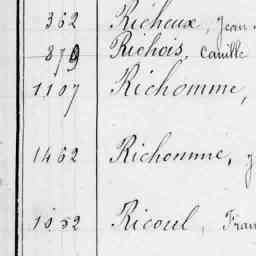 362 Richeux, Jean
879 Richois, Camille
1107 Richomme,
1462 Richomme, J
1052 Ricoul, Fran